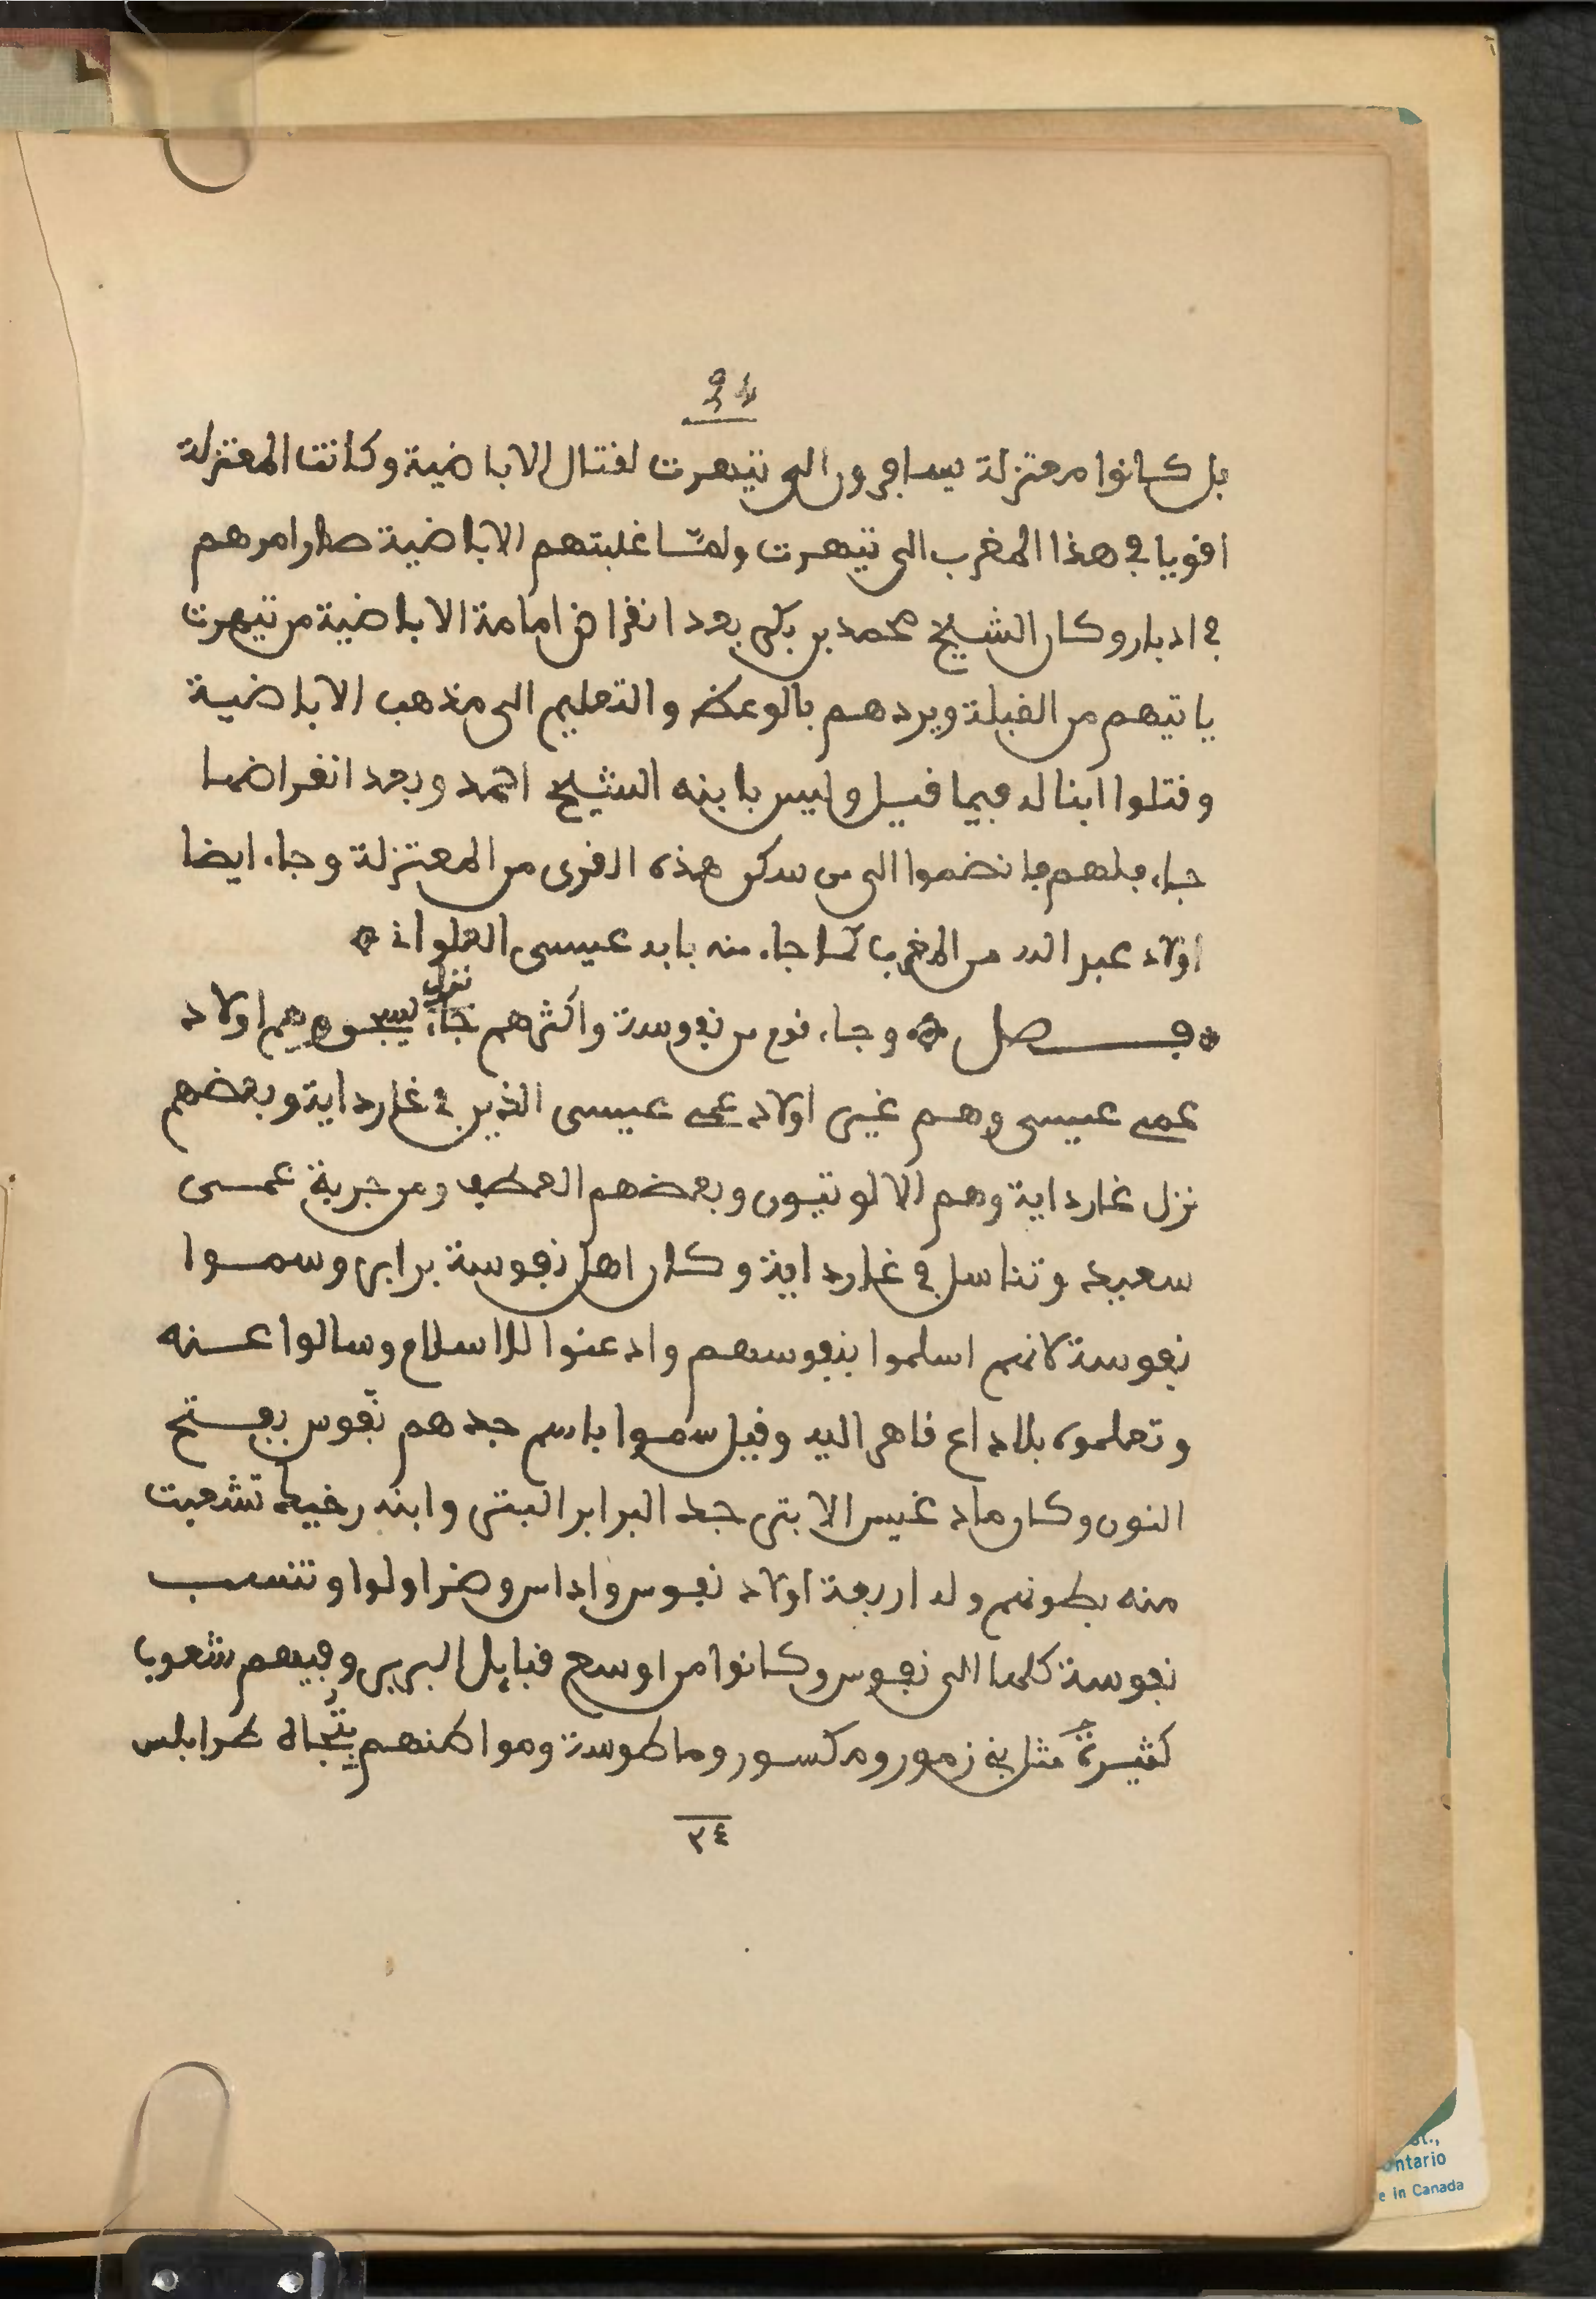 ٣٤
بل كانوا معتزلة يسافرون الى تيهرت لقتال الاباضية وكانت المعتزلة
اقويا في هذا المغرب الى تيهرت ولما غلبتهم الاباضية صار امرهم
في ادبار وكان الشيخ محمد بن بكر بعد انقراض امامة الاباضية من تيهرت
ياتيهم من القبلة ويردهم بالوعظ والتعليم الى مذهب الاباضية
وقتلوا ابنا له فيما قيل وليس بابنه الشيخ احمد وبعد انقراضها
جاء فانضموا الى من سكن هذه القرى من المعتزلة وجاء ايضا
اولاد عبد الله من المغرب كما جاء منه بابه عيسى العلواني
فصل وجاء قوم من نفوسة واكثرهم جاء نزل يسجن وهم اولاد
عمي عيسى وهم غير اولاد عمي عيسى الذين في غارداية وبعضهم
نزل غارداية وهم الالوتيون وبعضهم العطف ومن جربة عمي
سعيد وتناسل في غارداية وكان اهل نفوسة برابر وسموا
نفوسة لانهم اسلموا بنفوسهم واذعنوا للاسلام وسالوا عنه
وتعلموه بلا داع قاهر اليه وقيل سموا باسم جدهم نفوس بفتح
النون وكان مادغيس الابتر جد البرابر البتر وابنه زحيك تشعبت
منه بطونهم وله اربعة اولاد نفوس واداس وضرا ولوا وتنسب
نفوسة كلها الى نفوس وكانوا من اوسع قبايل البربر وفيهم شعوب
كثيرة مثل بني زمور ومكسور وماطوسة ومواطنهم بتجاه طرابلس
٣٤